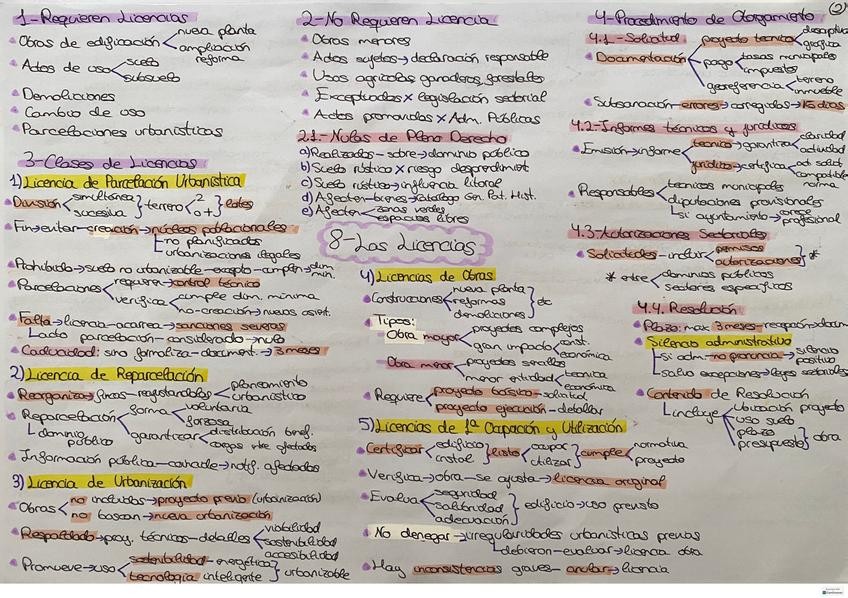 ②
1-Requieren Licencias
• Obras de edificación < nueva planta
ampliación
reforma
• Actos de uso < suelo
subsuelo
• Demoliciones
• Cambio de uso
• Parcelaciones urbanísticas
3-Clases de Licencias
1) Licencia de Parcelación Urbanística
• División < simultánea
sucesiva } terreno < 2
o + } lotes
• Fin → evitar - creación → núcleos poblacionales
↳ no planificados
↳ urbanizaciones ilegales
• Prohibido → suelo no urbanizable - excepto - cumplen → dim. min.
• Parcelaciones < requiere → control técnico
verifica < cumple dim. mínima
no-creación → nuevos asist.
• Falta → licencia - acarrea → sanciones severas
↳ acto parcelación - considerado → nulo
• Caducidad: sino formaliza - document. → 3 meses
2) Licencia de Reparcelación
• Reorganiza → fincas - registrables < planeamiento
urbanístico
• Reparcelación < forma < voluntaria
forzosa
↳ dominio público
garantizar < distribución benef.
cargas afectados
• Información pública - conlleve → notif. afectados
3) Licencia de Urbanización
• Obras < no incluidas → proyecto previo (urbanización)
no buscan → nueva urbanización
• Respaldado → proy. técnicos - detalles < viabilidad
sostenibilidad
accesibilidad
• Promueve → uso < sostenibilidad - energética
tecnología inteligente } urbanizable
2-No Requieren Licencia
• Obras menores
• Actos sujetos → declaración responsable
• Usos agrícolas ganaderos, forestales
• Exceptuados x legislación sectorial
• Actos promovidos x Adm. Públicas
2.1-Nulas de Pleno Derecho
a) Realizados - sobre → dominio público
b) Suelo rústico x riesgo desprendimt
c) Suelo rústico → influencia litoral
d) Afecten - bienes → catálogo Gen. Pat. Hist.
e) Afecten < zonas verdes
espacios libres
8-Las Licencias
4) Licencias de Obras
• Construcciones < nueva planta
reformas
demoliciones } etc
• Tipos:
Obra mayor < proyectos complejos
gran impacto < const.
económica
Obra menor < proyectos sencillos
menor entidad < técnica
económica
• Requiere < proyecto básico - solicitud
proyecto ejecución - detallar
5) Licencias de 1ª Ocupación y Utilización
• Certificar < edificio
instal } listo < ocupar
utilizar } cumple < normativa
proyecto
• Verifica → obra - se ajusta → licencia original
• Evalua < seguridad
salubridad
adecuación } edificio → uso previsto
• No denegar → irregularidades urbanísticas previas
↳ debieron - evaluar → licencia obra
• Hay inconsistencias graves - anular → licencia
4-Procedimiento de Otorgamiento
4.1-Solicitud
• Documentación < proyecto técnico <
gráfica
pago < tasas municipales
impuestos
georeferencia < terreno
inmueble
• Subsanación - errores → corregidos → 15 días
4.2-Informes técnicos y jurídicos
• Emisión → informe < técnico → garantiza < claridad
actividad
jurídico → certifica < act. solicit
compatible
norma
• Responsables < técnicos municipales
diputaciones provisionales
↳ si ayuntamiento → carece
profesional
4.3-Autorizaciones Sectoriales
• Solicitudes - incluir < permisos
autorizaciones } *
* entre < dominios públicos
sectores específicos
4.4. Resolución
• Plazo: max. 3 meses -
• Silencio administrativo
↳ si adm - no pronuncia → silencio positivo
↳ salvo excepciones → leyes sectoriales
• Contenido de Resolución
↳ incluye < ubicación proyecto
uso suelo
plazo
presupuesto } obra